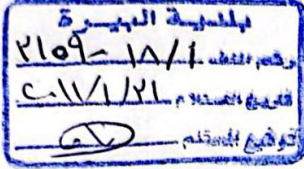 بلدية البيرة
رقم الملف ٢١٥٩ - ١٨/١
تاريخ الاستلام ٢٠١٧/١/٢١
توقيع المستلم